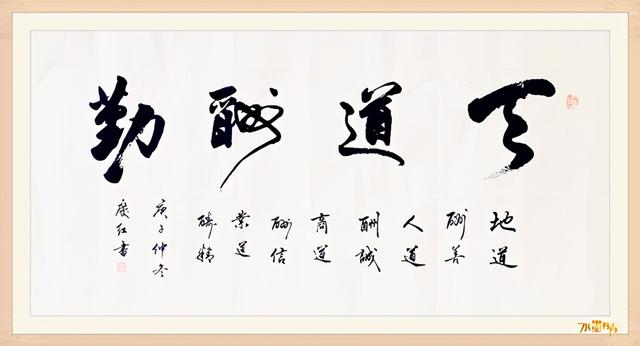 天道酬勤
地道
酬善
人道
酬誠
商道
酬信
業道
酬精
庚子仲冬
红書